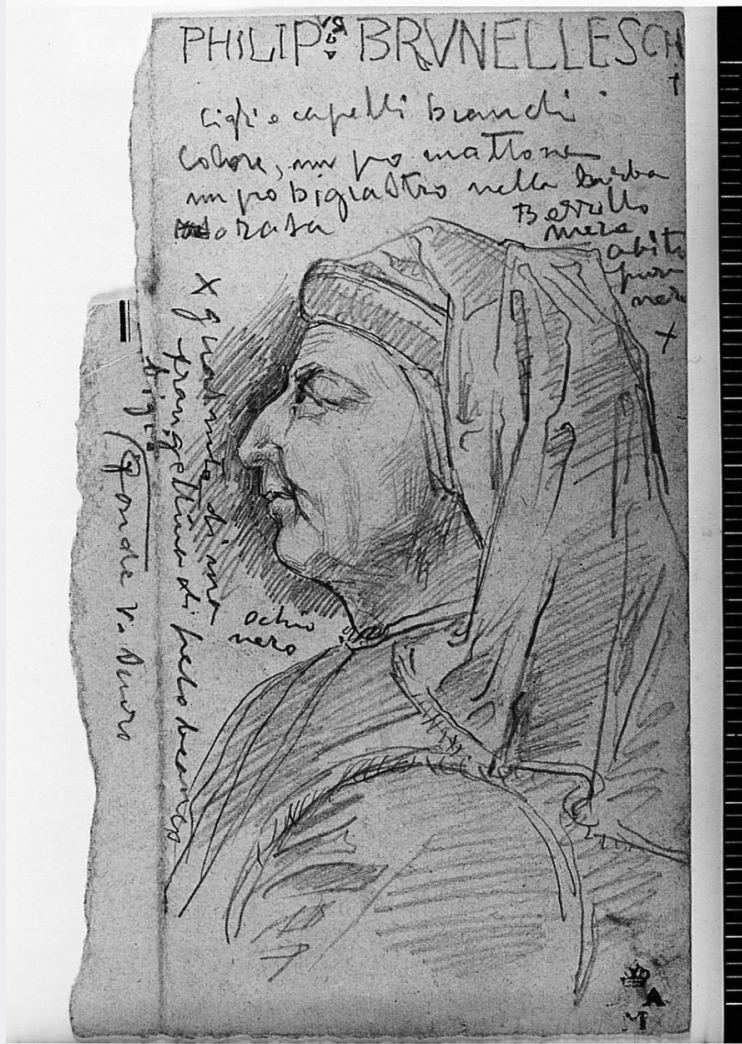 PHILIPVS BRVNELLESCH
cigli e capelli bianchi
colore, un po mattone
un po bigiastro nella barba
rasa
Berretto
nero
abito
pur
nero
X
X guarnito di una
frangettina di pelo bianco
occhio
nero
bigia
A
M